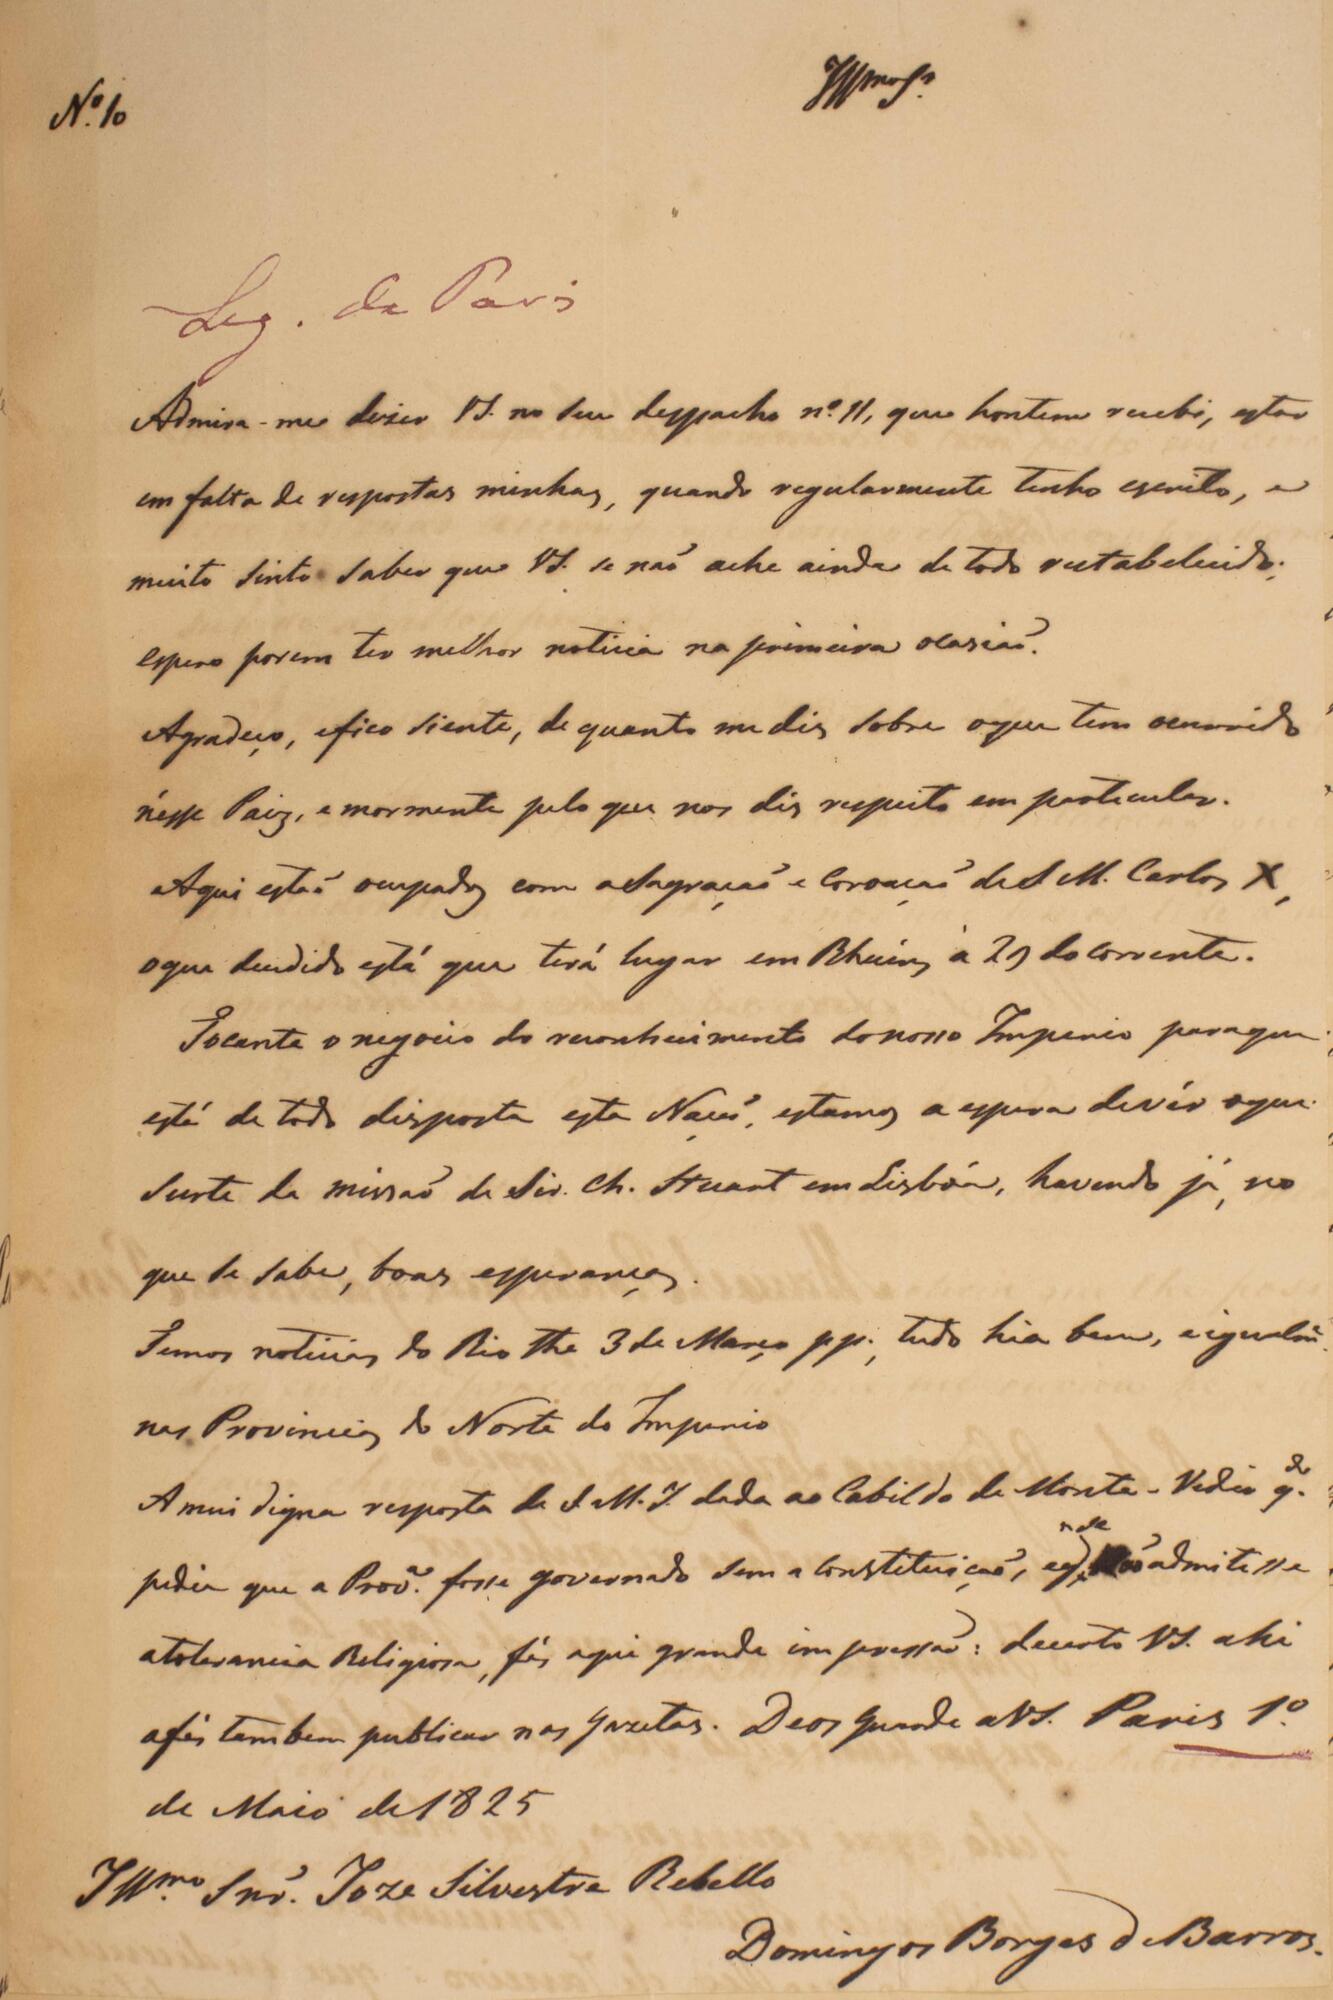 Nº. 10
Illmo Sr.
Leg. de Paris
Admira-me dizer VS. no seu despacho nº. 11, que hontem recebi, estar
em falta de respostas minhas, quando regularmente tenho escrito, e
muito sinto saber que VS. se naõ ache ainda de todo restabelecido;
espero porem ter melhor noticia na primeira ocasiaõ.
Agradeço, efico siente, de quanto me dis sobre oque tem ocorrido
nésse Paiz, e mormente pelo que nos dis respeito em particular.
Aqui estaõ ocupados com aSagraçaõ e Coroaçaõ de S M. Carlos X,
oque decidido está que terá lugar em Rheims à 29 do corrente.
Tocante o negocio do reconhecimento do nosso Imperio paraque
está de todo disposta esta Naçaõ, estamos a espera de vér oque
surte da missaõ de Sir. Ch. Stuart em Lisbôa, havendo já, no
que se sabe, boas esperanças.
Temos noticias do Rio the 3 de Março pp., tudo hia bem, e igualm.
nas Provincias do Norte do Imperio
A mui digna resposta de S. M. I. dada ao Cabildo de Monte-Vedio q.do
pedia que a Prov.ª fosse governado sem a constituiçaõ, eq. naõ se admitesse
atolerancia Religiosa, fés aqui grande impressaõ: decerto VS. ahi
afés tambem publicar nas gazetas. Deos Guarde aVS. Paris 1º.
de Maio de 1825
Illmo. Snr. Joze Silvestre Rebello
Domingos Borges de Barros.